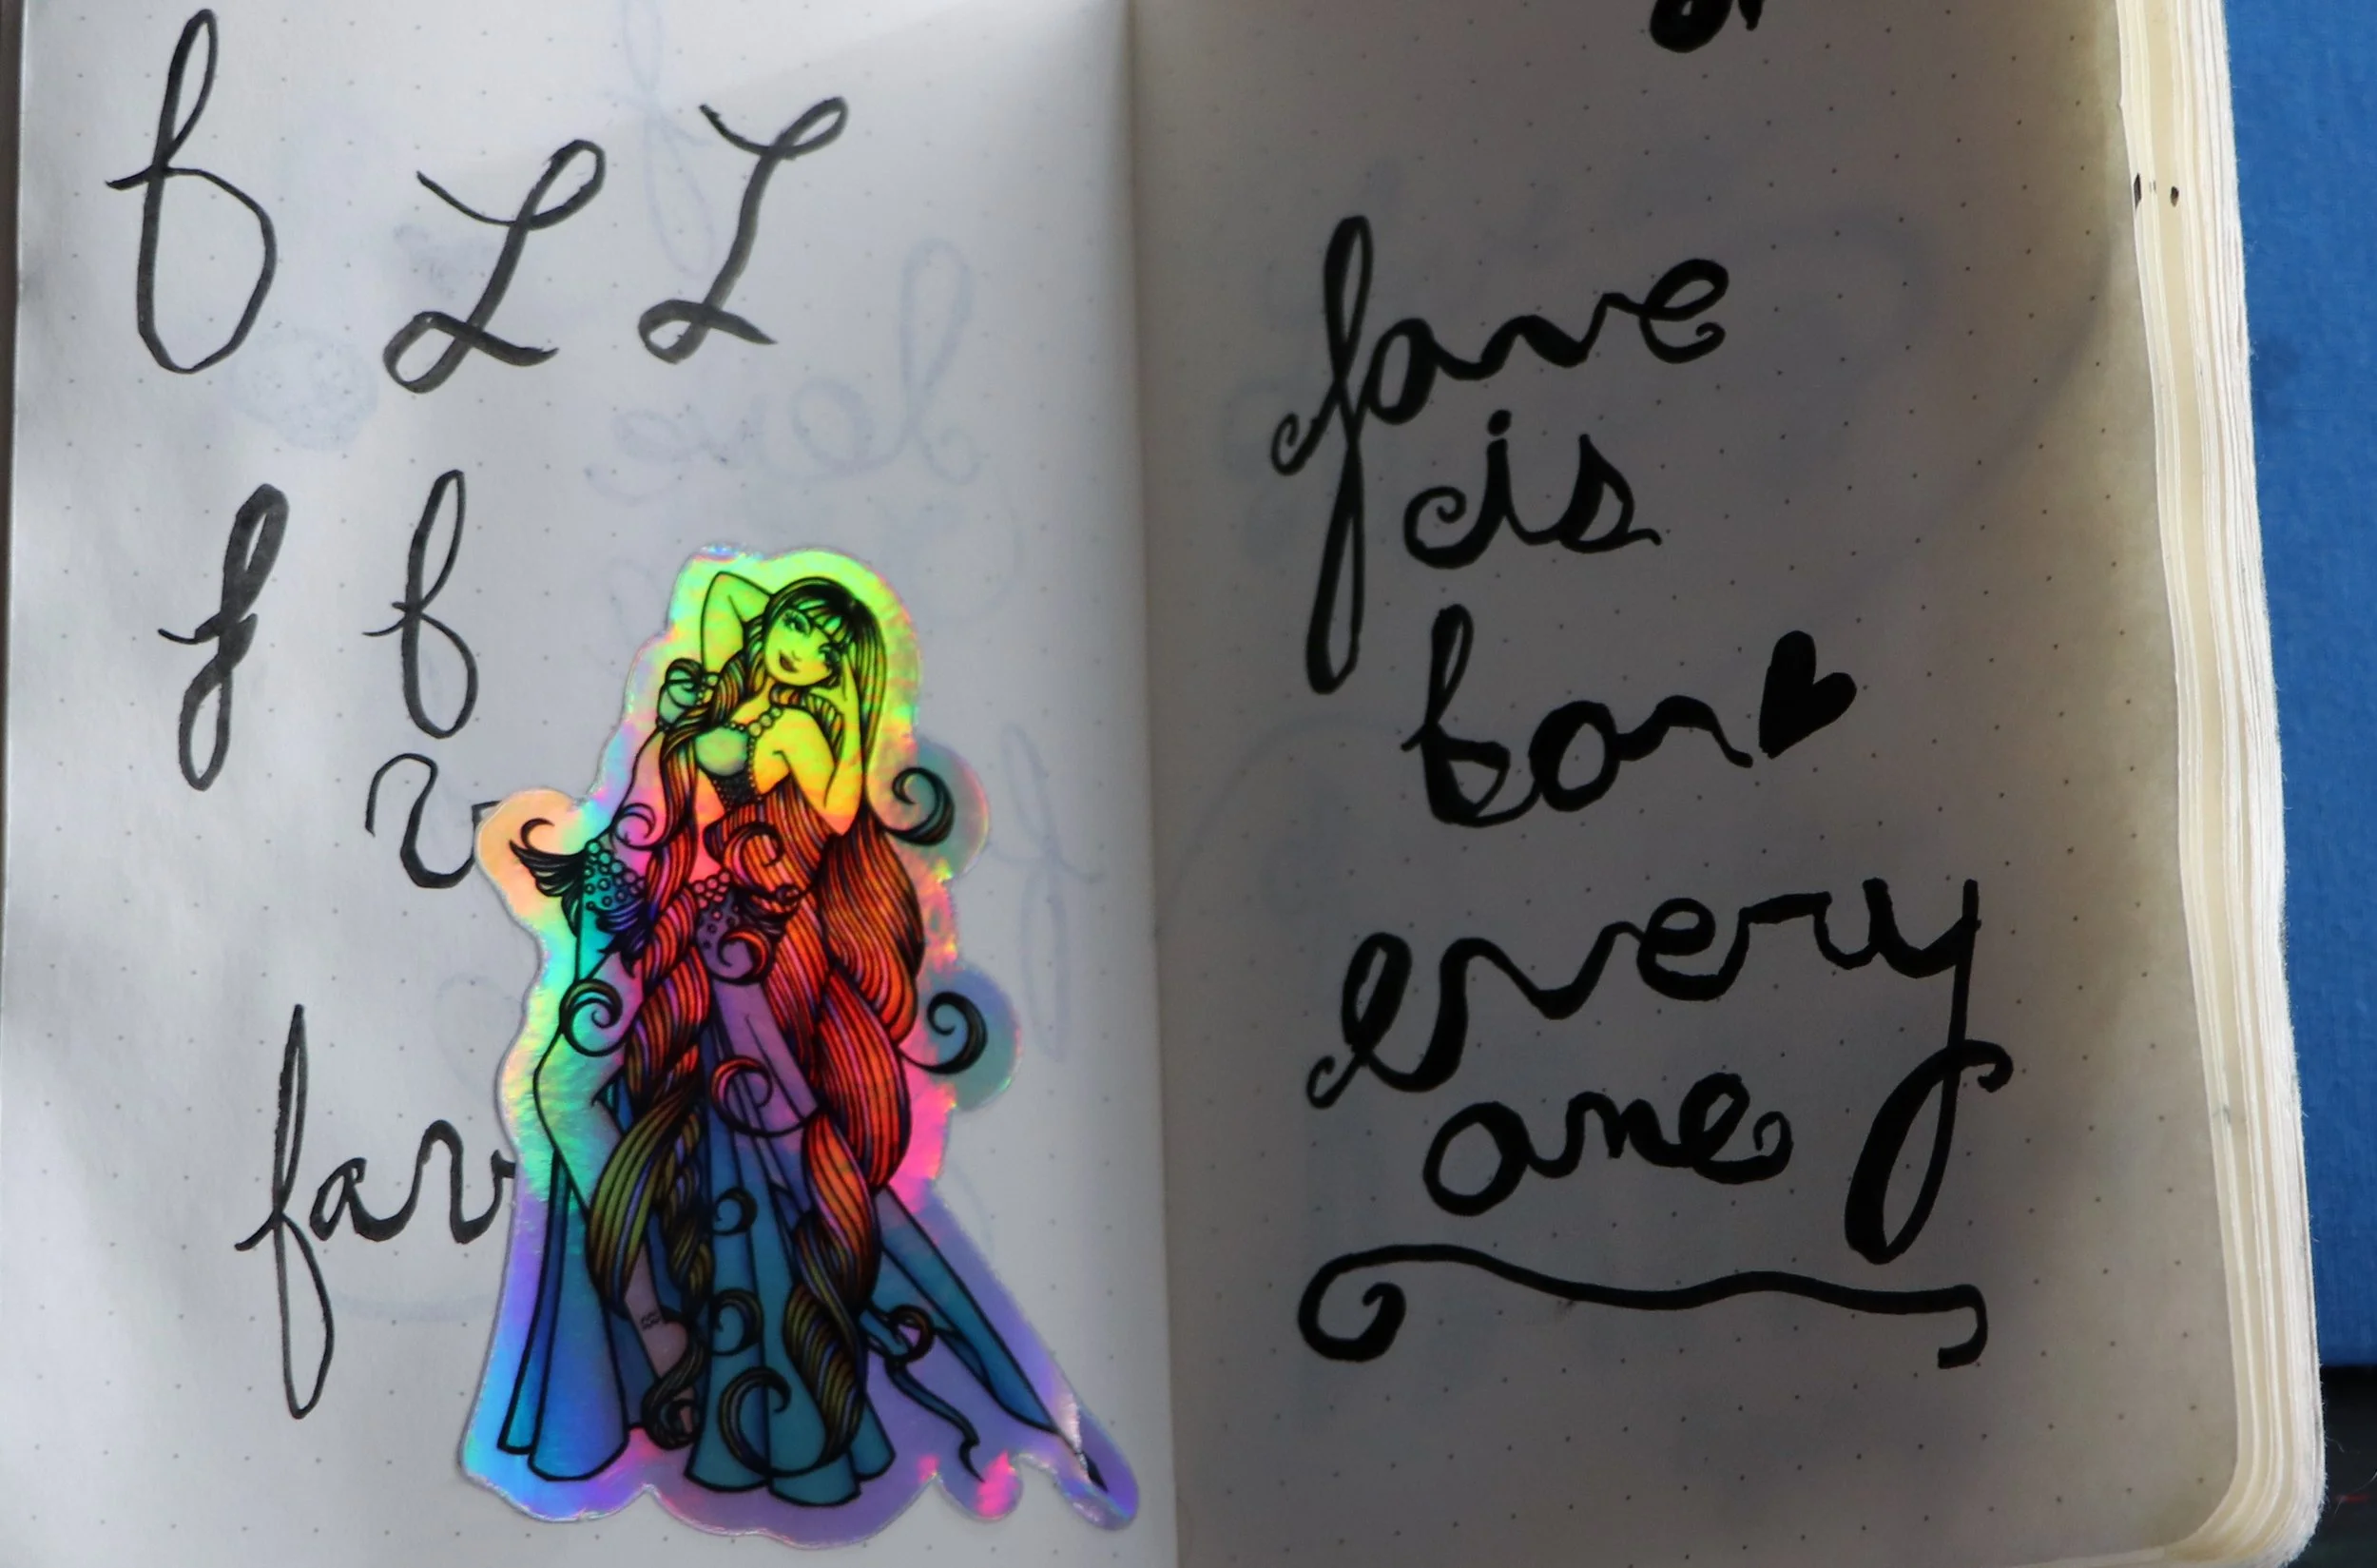 f L L
f f
v
fav
fave
is
for
every
one